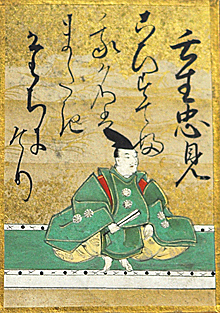 壬生忠見
こひすてふ
我か名は
またき
たちにけり